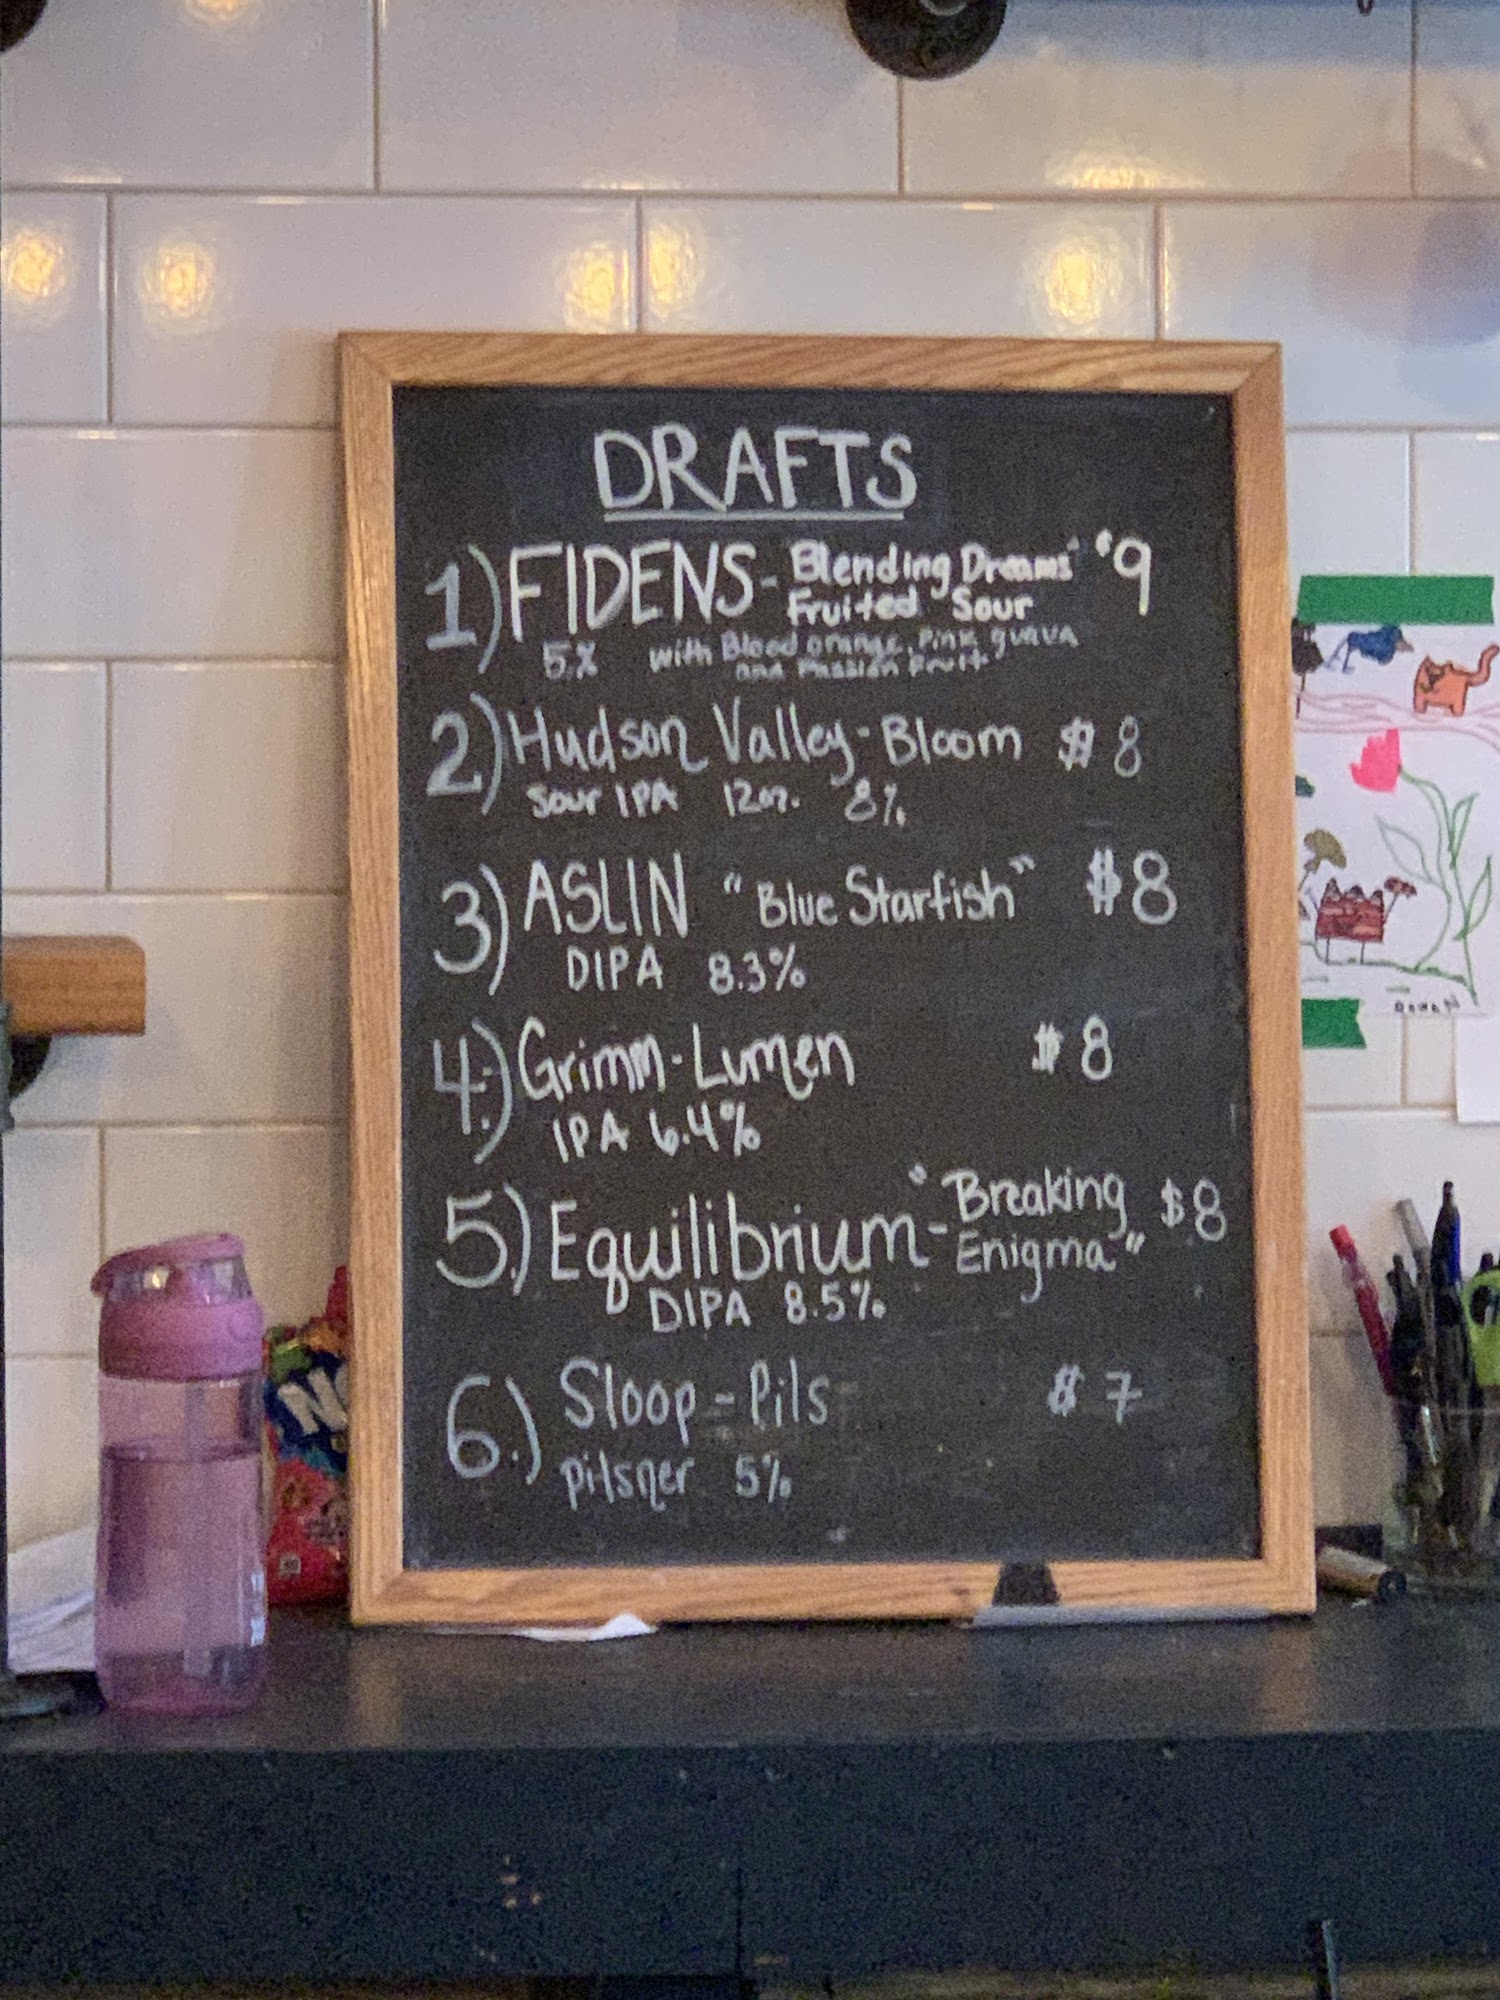 DRAFTS
1) FIDENS - Blending Dreams" $9
Fruited Sour
5% with Blood orange, Pink guava
and Passion Fruit
2) Hudson Valley - Bloom $8
Sour IPA 12oz. 8%
3) ASLIN "Blue Starfish" $8
DIPA 8.3%
4.) Grimm - Lumen $8
IPA 6.4%
5.) Equilibrium - "Breaking $8
Enigma"
DIPA 8.5%
6.) Sloop - Pils $7
Pilsner 5%